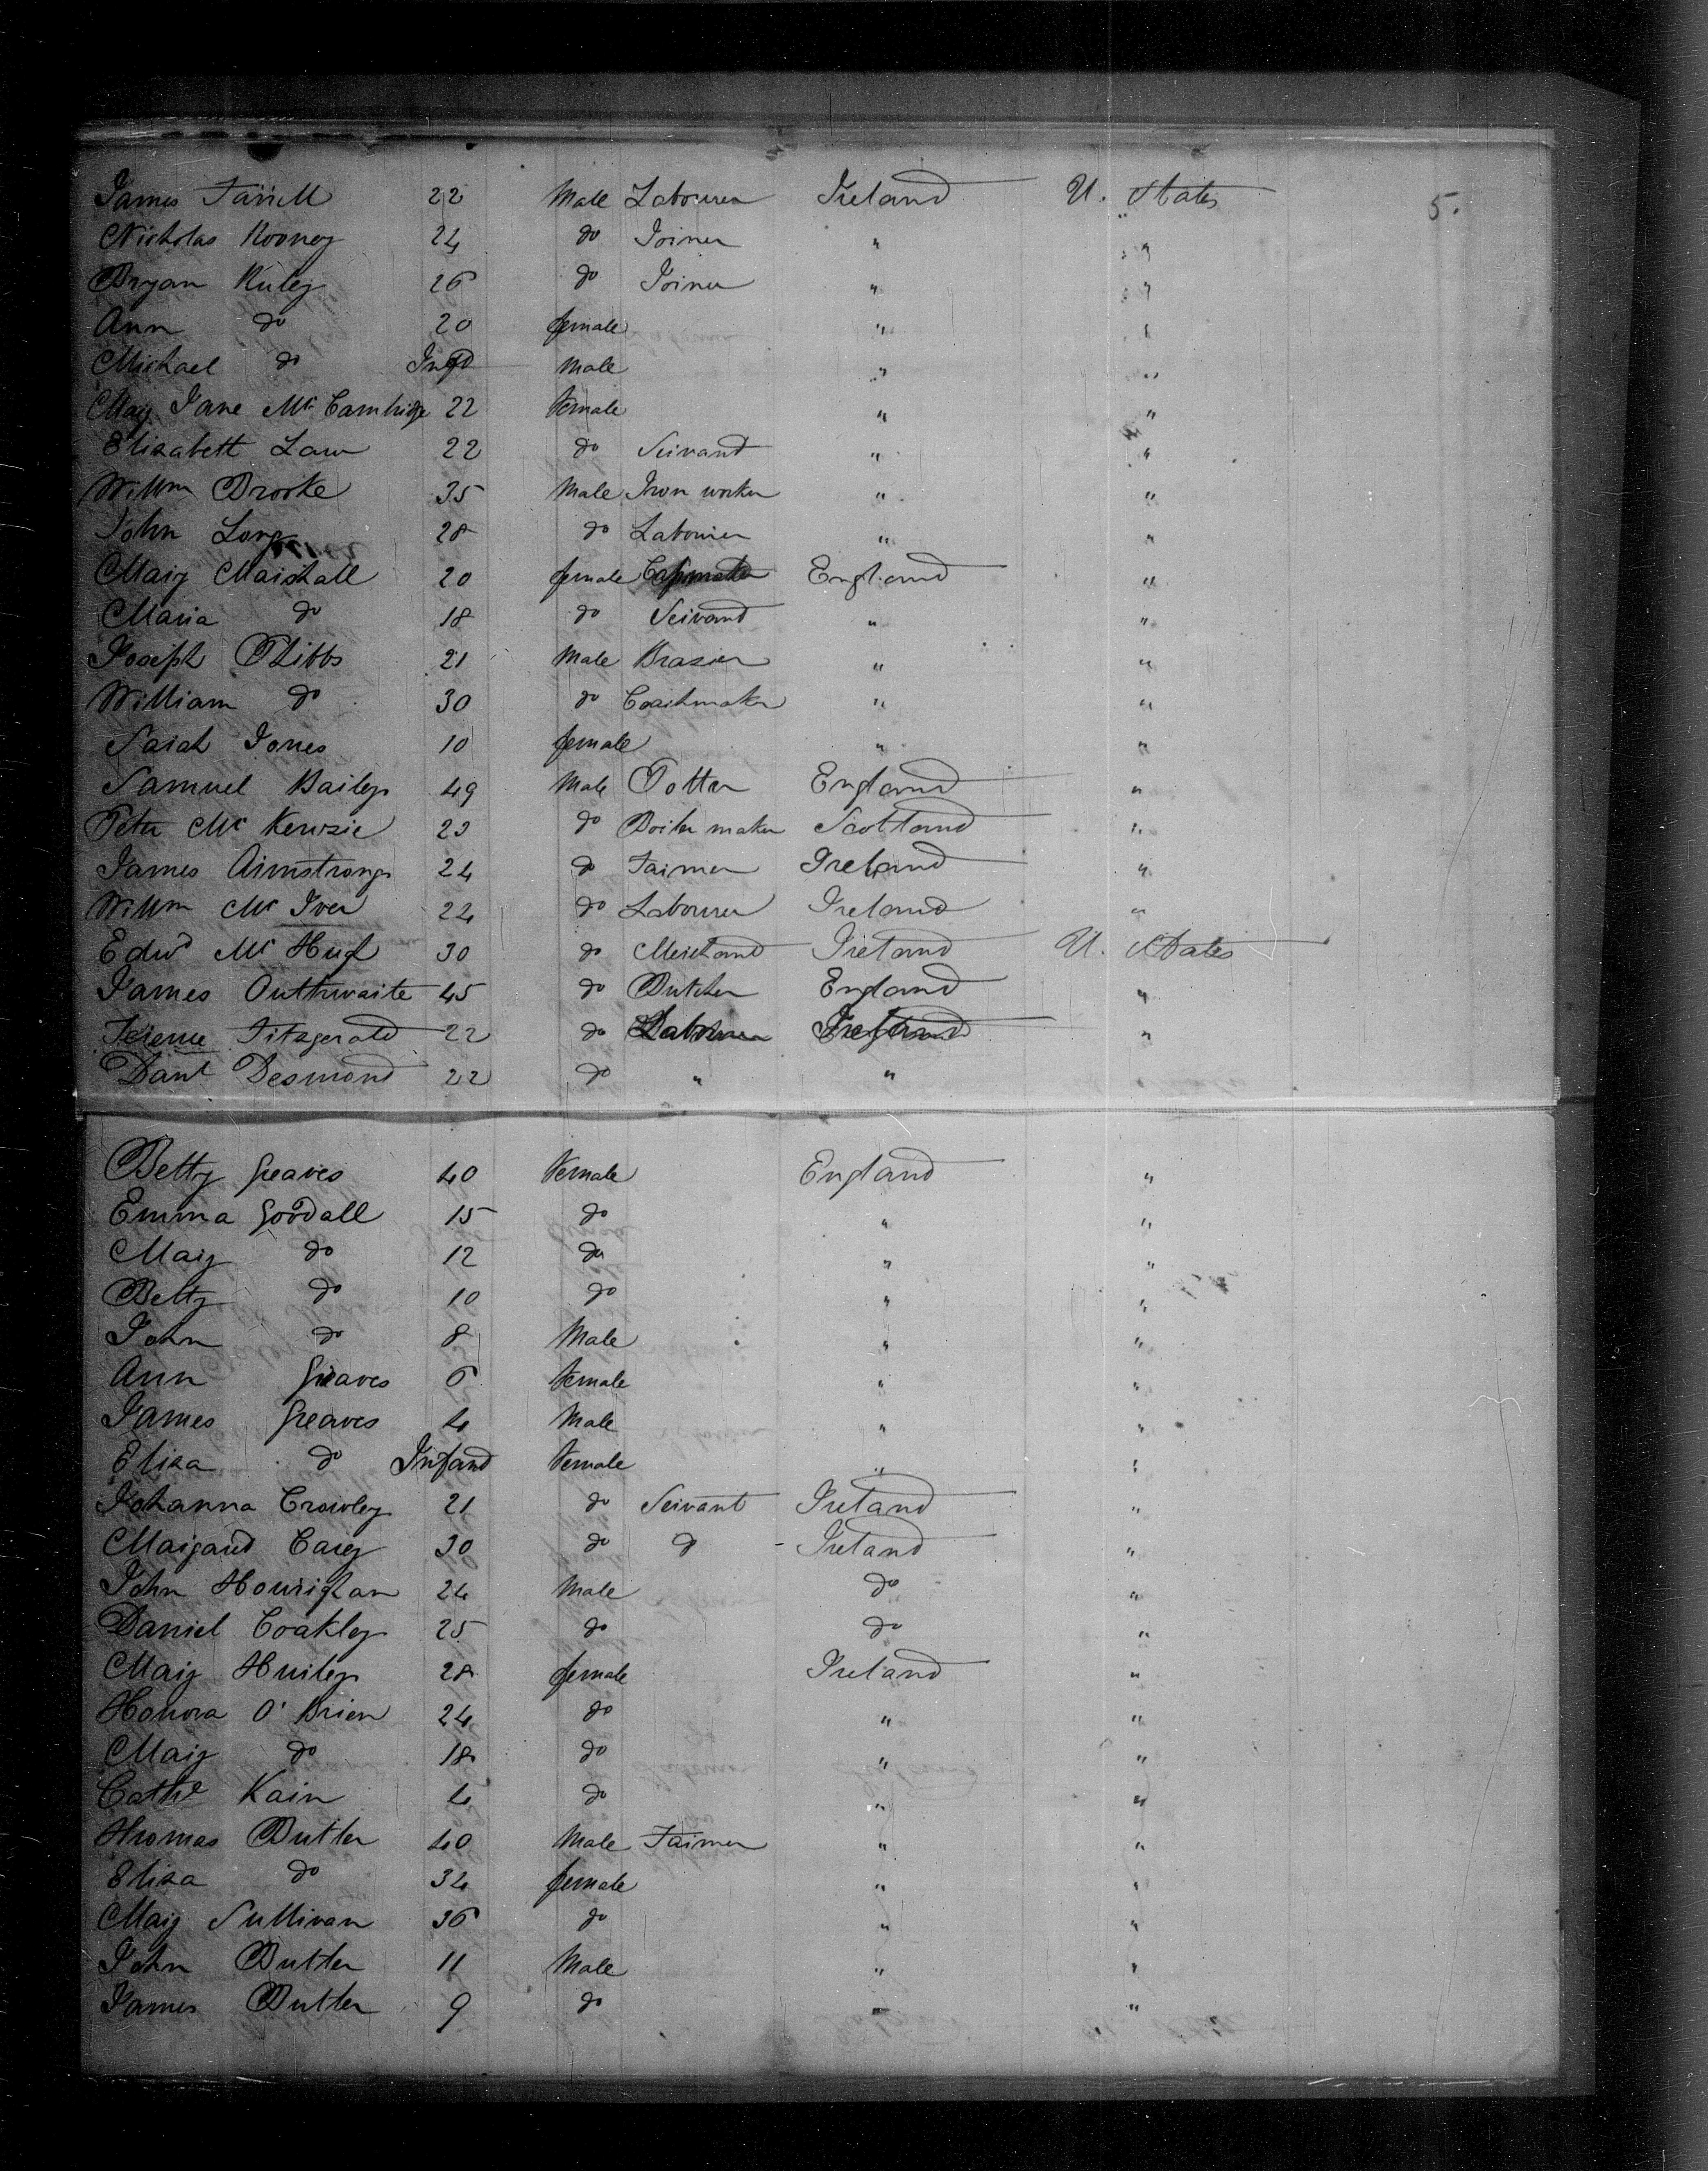 James Farrell 22 Male Labourer Ireland U. States 5.
Nicholas Rooney 24 do Joiner " "
Bryan Ruley 26 do Joiner " "
Ann do 20 female " "
Michael do Inft Male " "
Mary Jane Mc Cambridge 22 female " "
Elisabett Law 22 do Servant " "
Willm Brooke 35 Male Iron worker " "
John Long 28 do Labourer " "
Mary Marshall 20 female Capmaker England "
Maria do 18 do Servand " "
Joseph Phibbs 21 Male Brazier " "
William do 30 do Coachmaker " "
Sarah Jones 10 female " "
Samuel Bailey 49 Male Potter England "
Peter Mc Kenzie 23 do Boiler maker Scotland "
James Armstrong 24 do Farmer Ireland "
Willm Mc Iver 24 do Labourer Ireland "
Edwd Mc Hugh 30 do Merchant Ireland U. States
James Outhwaite 45 do Butcher England "
Terence Fitzgerald 22 do Labourer Ireland "
Danl Desmond 22 do " " 
Betty Greaves 40 female England "
Emma Goodall 15 do " "
Mary do 12 do " "
Betty do 10 do " "
John do 8 Male " "
Ann Greaves 6 female " "
James Greaves 4 Male " "
Eliza do Infand female " "
Johanna Crowley 21 do Servant Ireland "
Margand Carey 30 do do Ireland "
John Hourighan 24 Male do "
Daniel Coakley 25 do do "
Mary Hurley 28 female Ireland "
Honora O'Brien 24 do " "
Mary do 18 do " "
Cathe Kain 4 do " "
Thomas Butler 40 Male Farmer " "
Eliza do 34 female " "
Mary Sullivan 36 do " "
John Butler 11 Male " "
James Butler 9 do " "